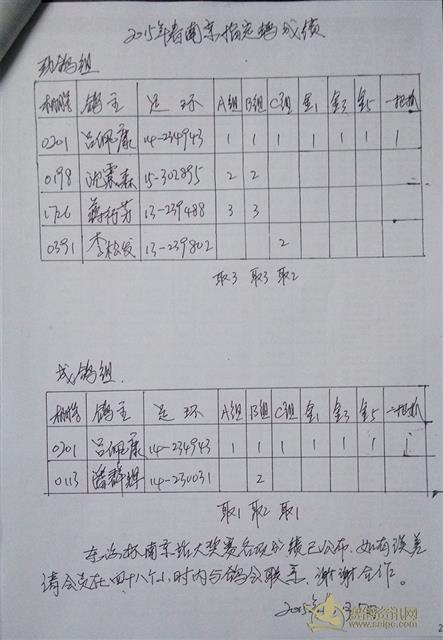 2015年春南京指定鸽成绩
幼鸽组
棚号 鸽主 足环 A组 B组 C组 金1 金3 金5 一把抓
0201 吕佩康 14-234943 1 1 1 1 1 1 1
0198 沈震森 15-302895 2 2
1726 蒋行芳 13-239488 3 3
0391 李松俊 13-239802 2
取3 取3 取2
成鸽组
棚号 鸽主 足环 A组 B组 C组 金1 金3 金5 一把抓
0201 吕佩康 14-234943 1 1 1 1 1 1 1
0113 潘群辉 14-230031 2
取1 取2 取1
南京站大奖赛各项成绩已公布，如有误差
请会员在四十八个小时内与鸽会联系。谢谢合作。
2015年
赛鸽资讯网
www.saige.com
2